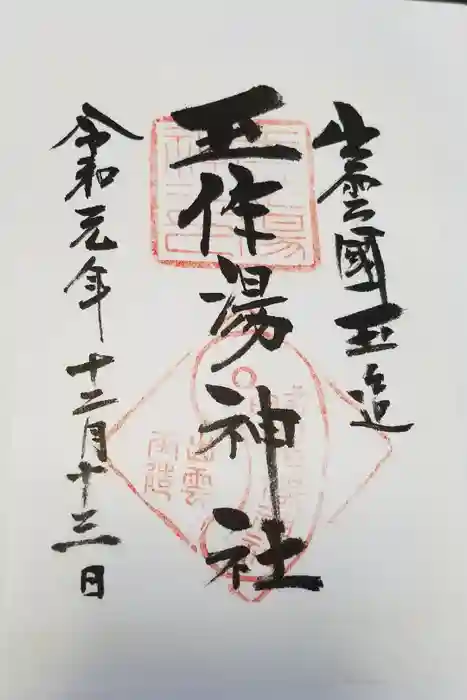 出雲國玉造
玉作湯神社
令和元年十二月十三日